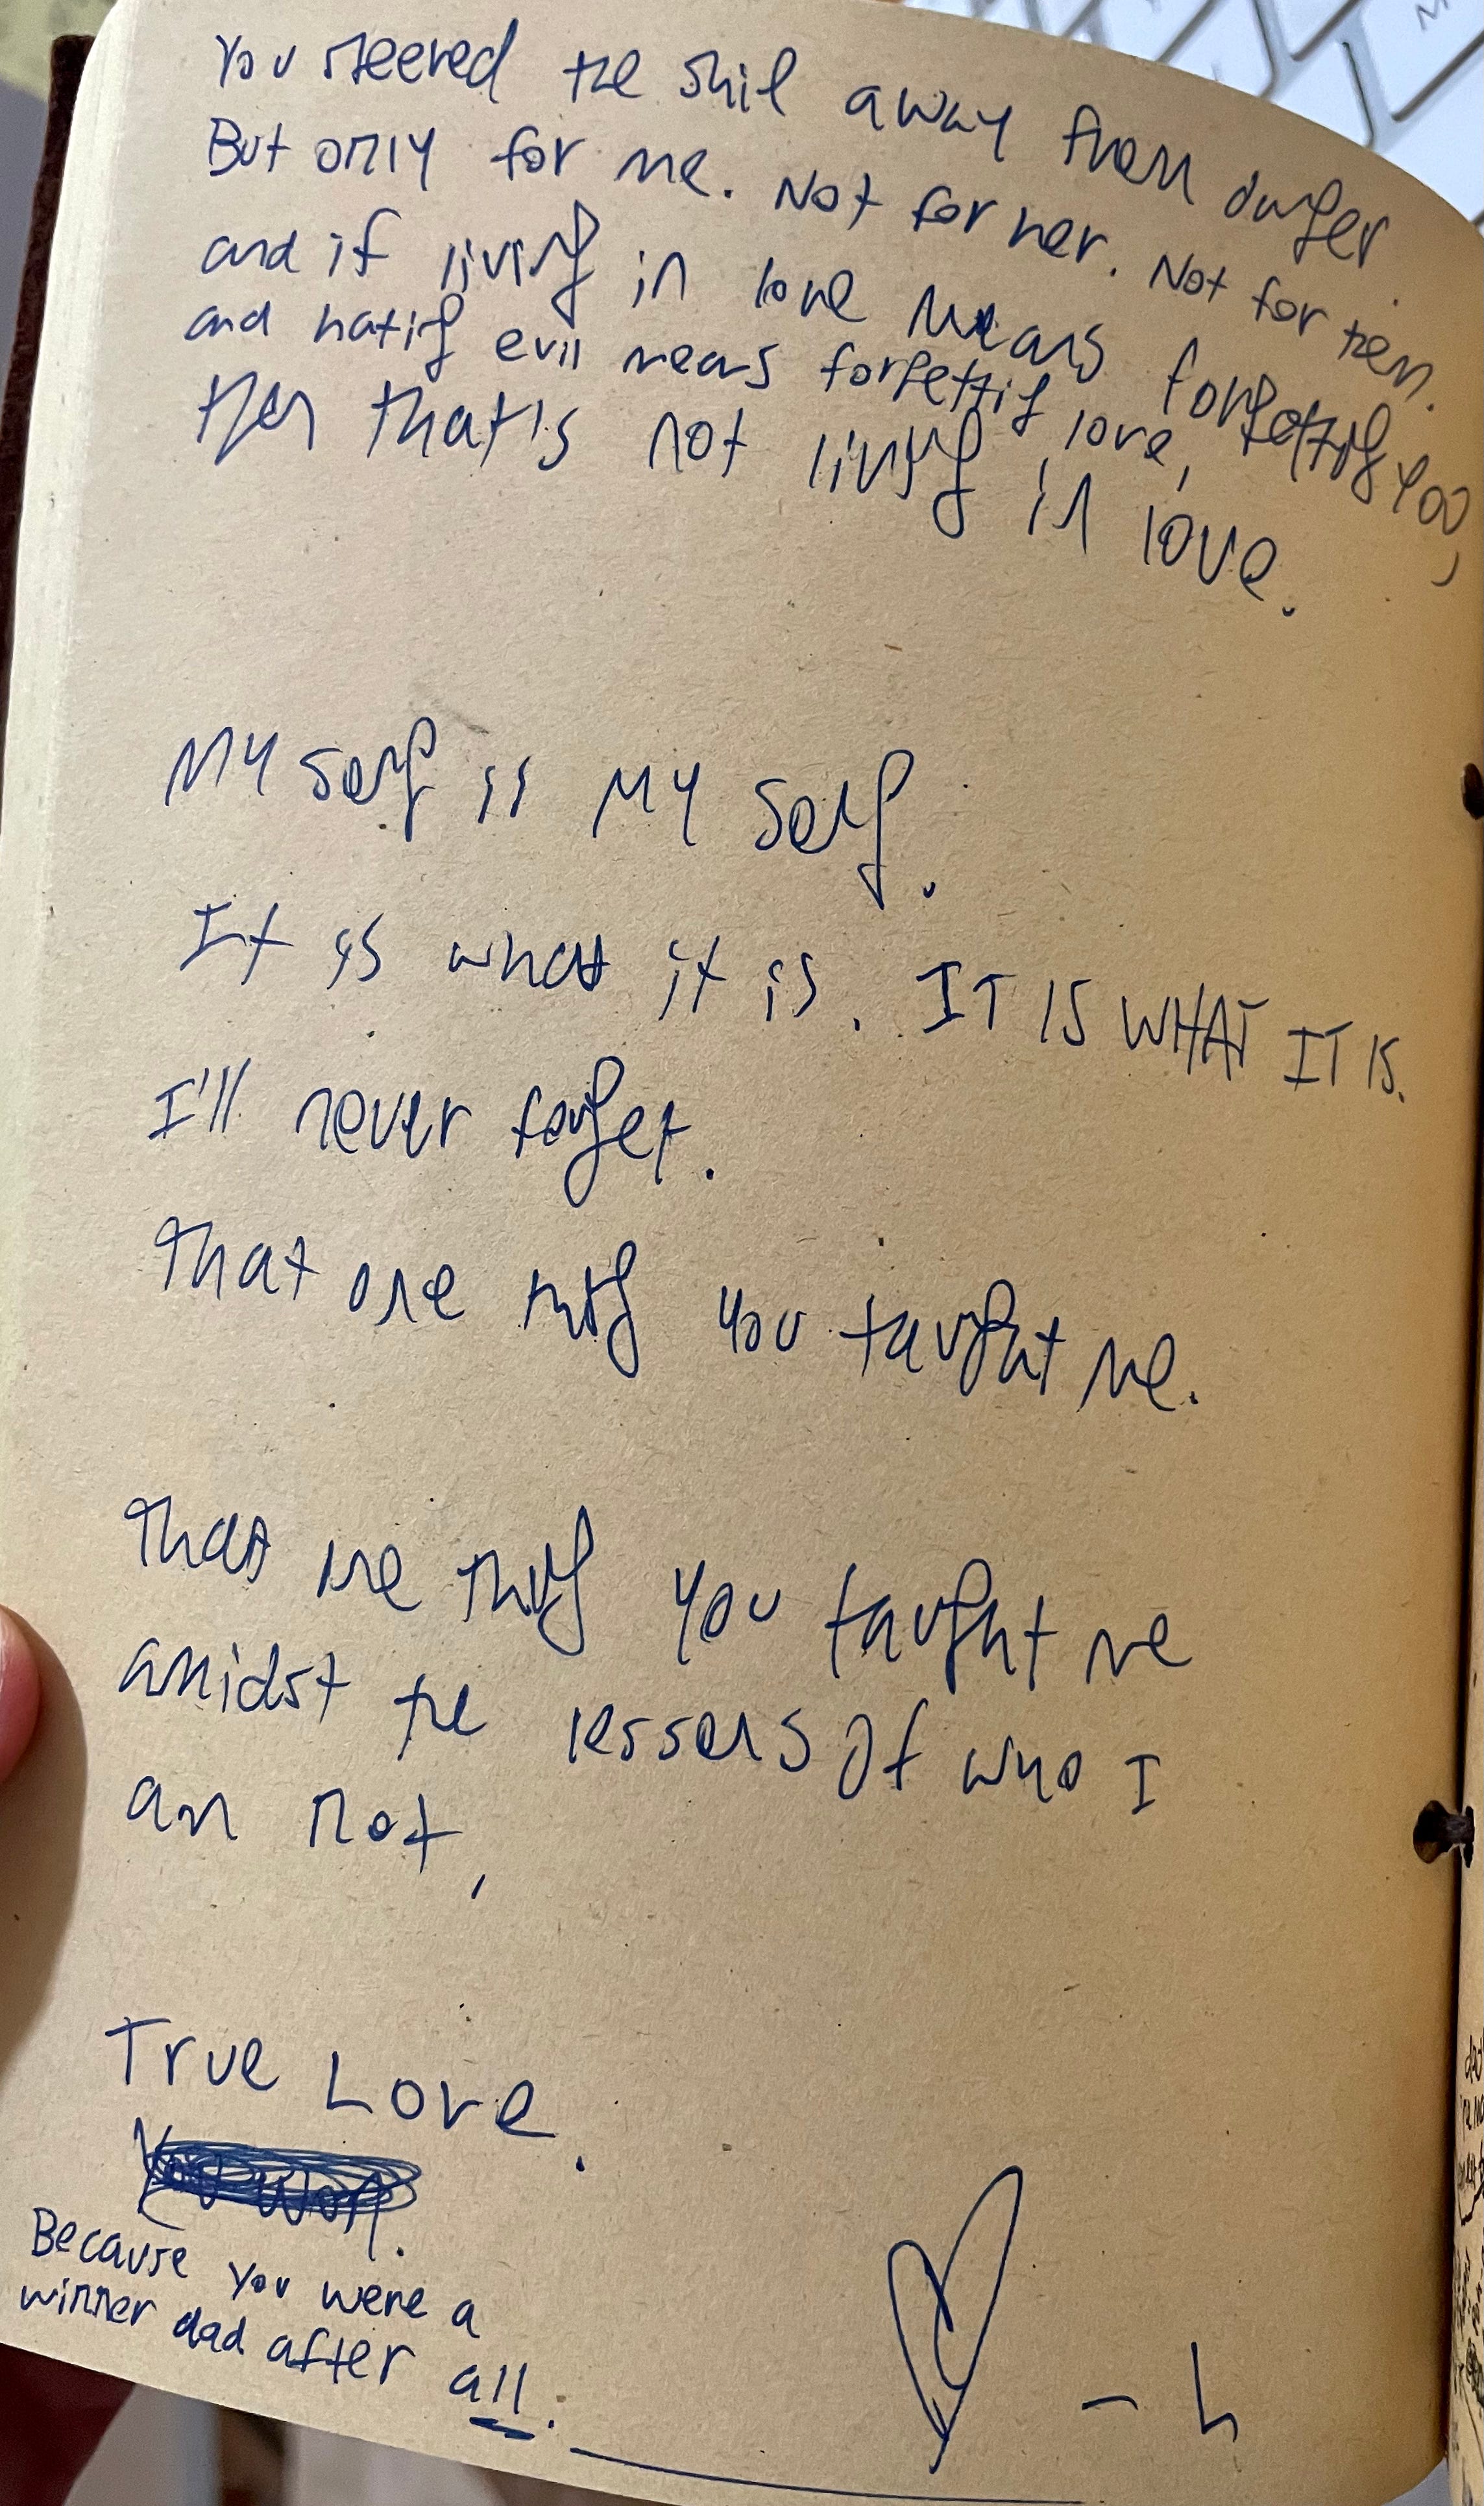 You steered the ship away from danger.
But only for me. Not for her. Not for them.
and if living in love means forgetting you,
and hating evil means forgetting love,
then that's not living in love.
My self is my self.
It is what it is. IT IS WHAT IT IS.
I'll never forget.
That one thing you taught me.
That one thing you taught me
amidst the lessons of who I
am not,
True Love.
Because you were a
winner dad after all.
- L